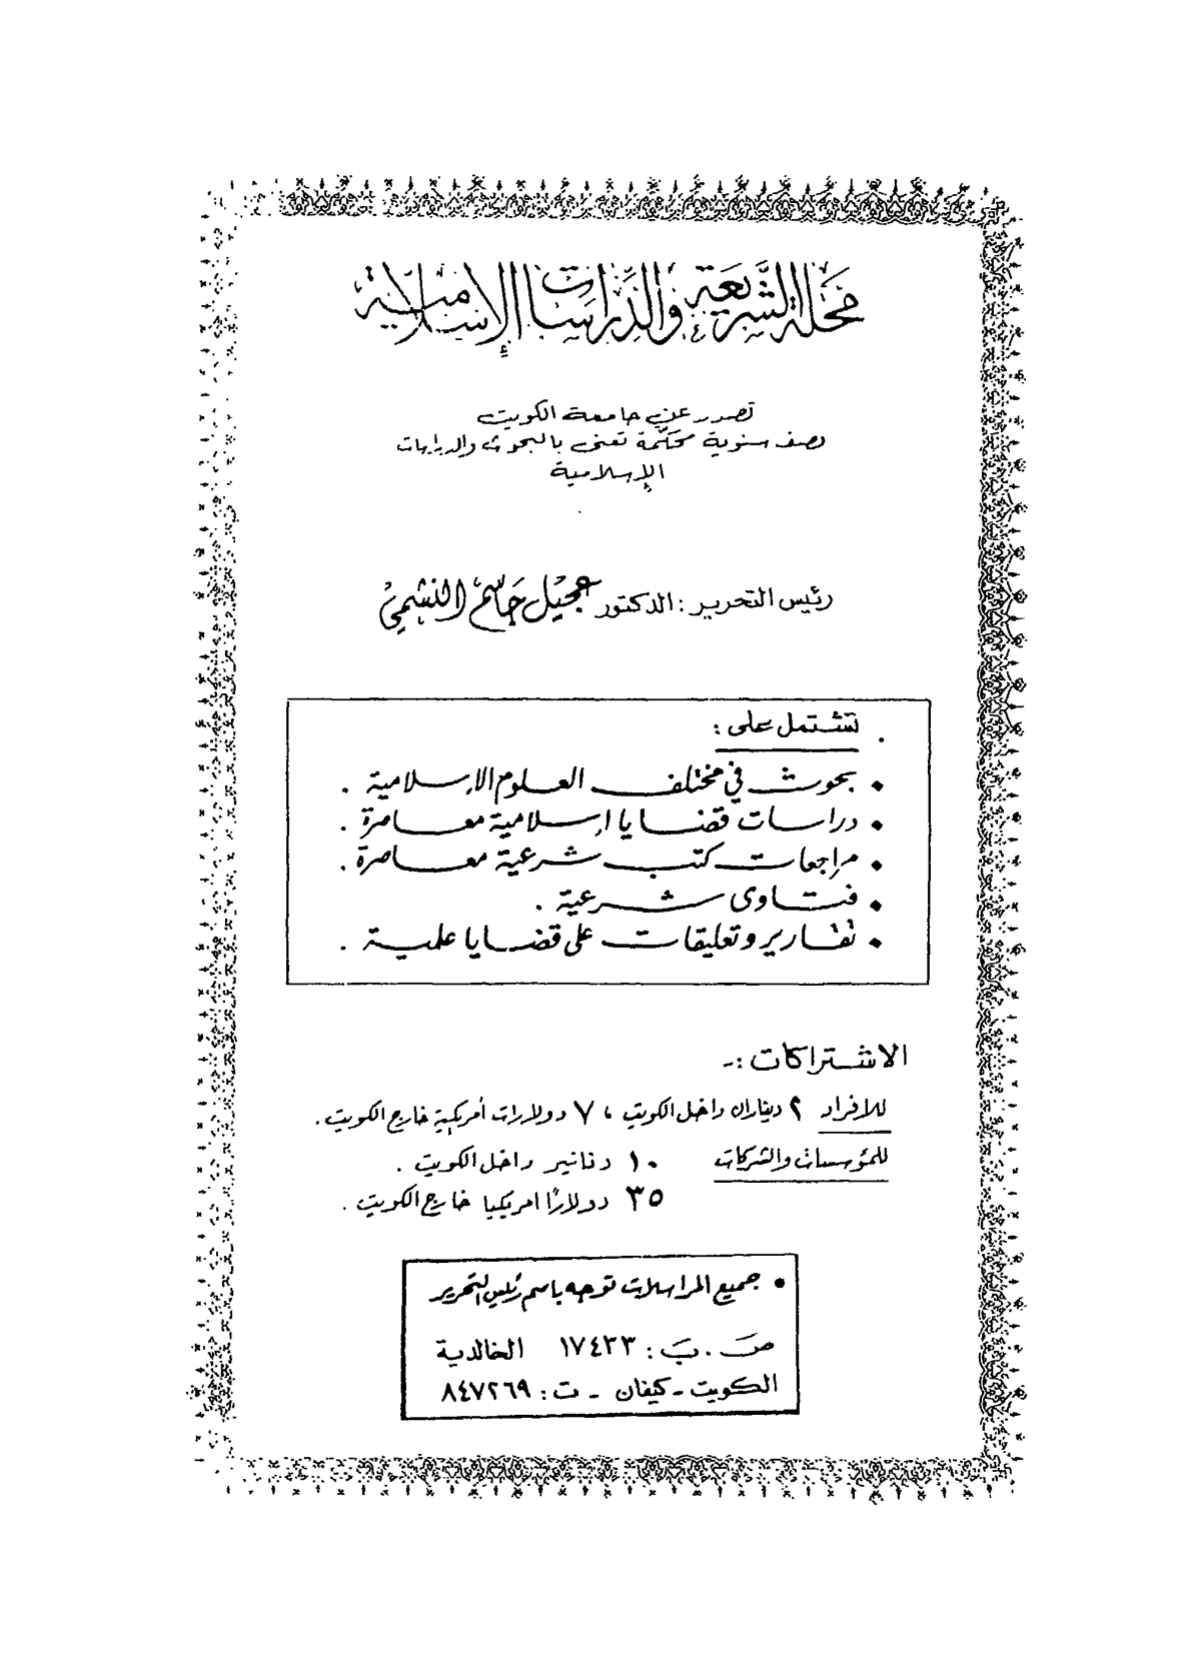 مجلة الشريعة والدراسات الإسلامية
تصدر عن جامعة الكويت
نصف سنوية محكّمة تعنى بالبحوث والدراسات
الإسلامية
رئيس التحرير : الدكتور عجيل جاسم النشمي
تشتمل على :
• بحوث في مختلف العلوم الاسلامية .
• دراسات قضايا إسلامية معاصرة .
• مراجعات كتب شرعية معاصرة .
• فتاوى شرعية .
• تقارير وتعليقات على قضايا علمية .
الاشتراكات :-
للافراد ٢ ديناران داخل الكويت ، ٧ دولارات أمريكية خارج الكويت .
للمؤسسات والشركات ١٠ دنانير داخل الكويت .
٣٥ دولارًا امريكيا خارج الكويت .
• جميع المراسلات توجه باسم رئيس التحرير
ص . ب : ١٧٤٣٣ الخالدية
الكويت - كيفان - ت : ٨٤٧٢٦٩